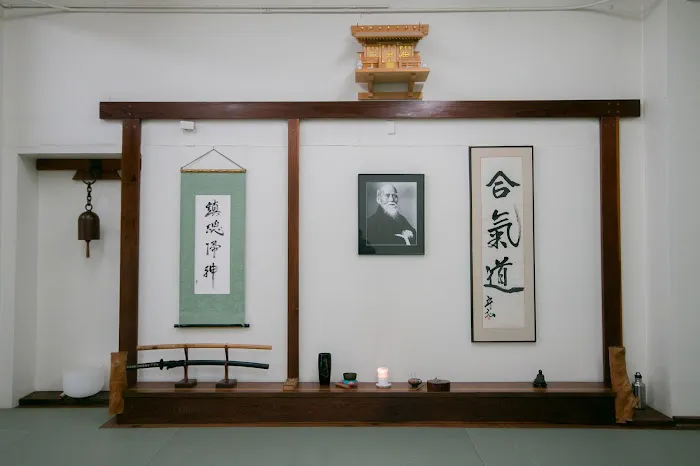 鎮魂帰神
合氣道